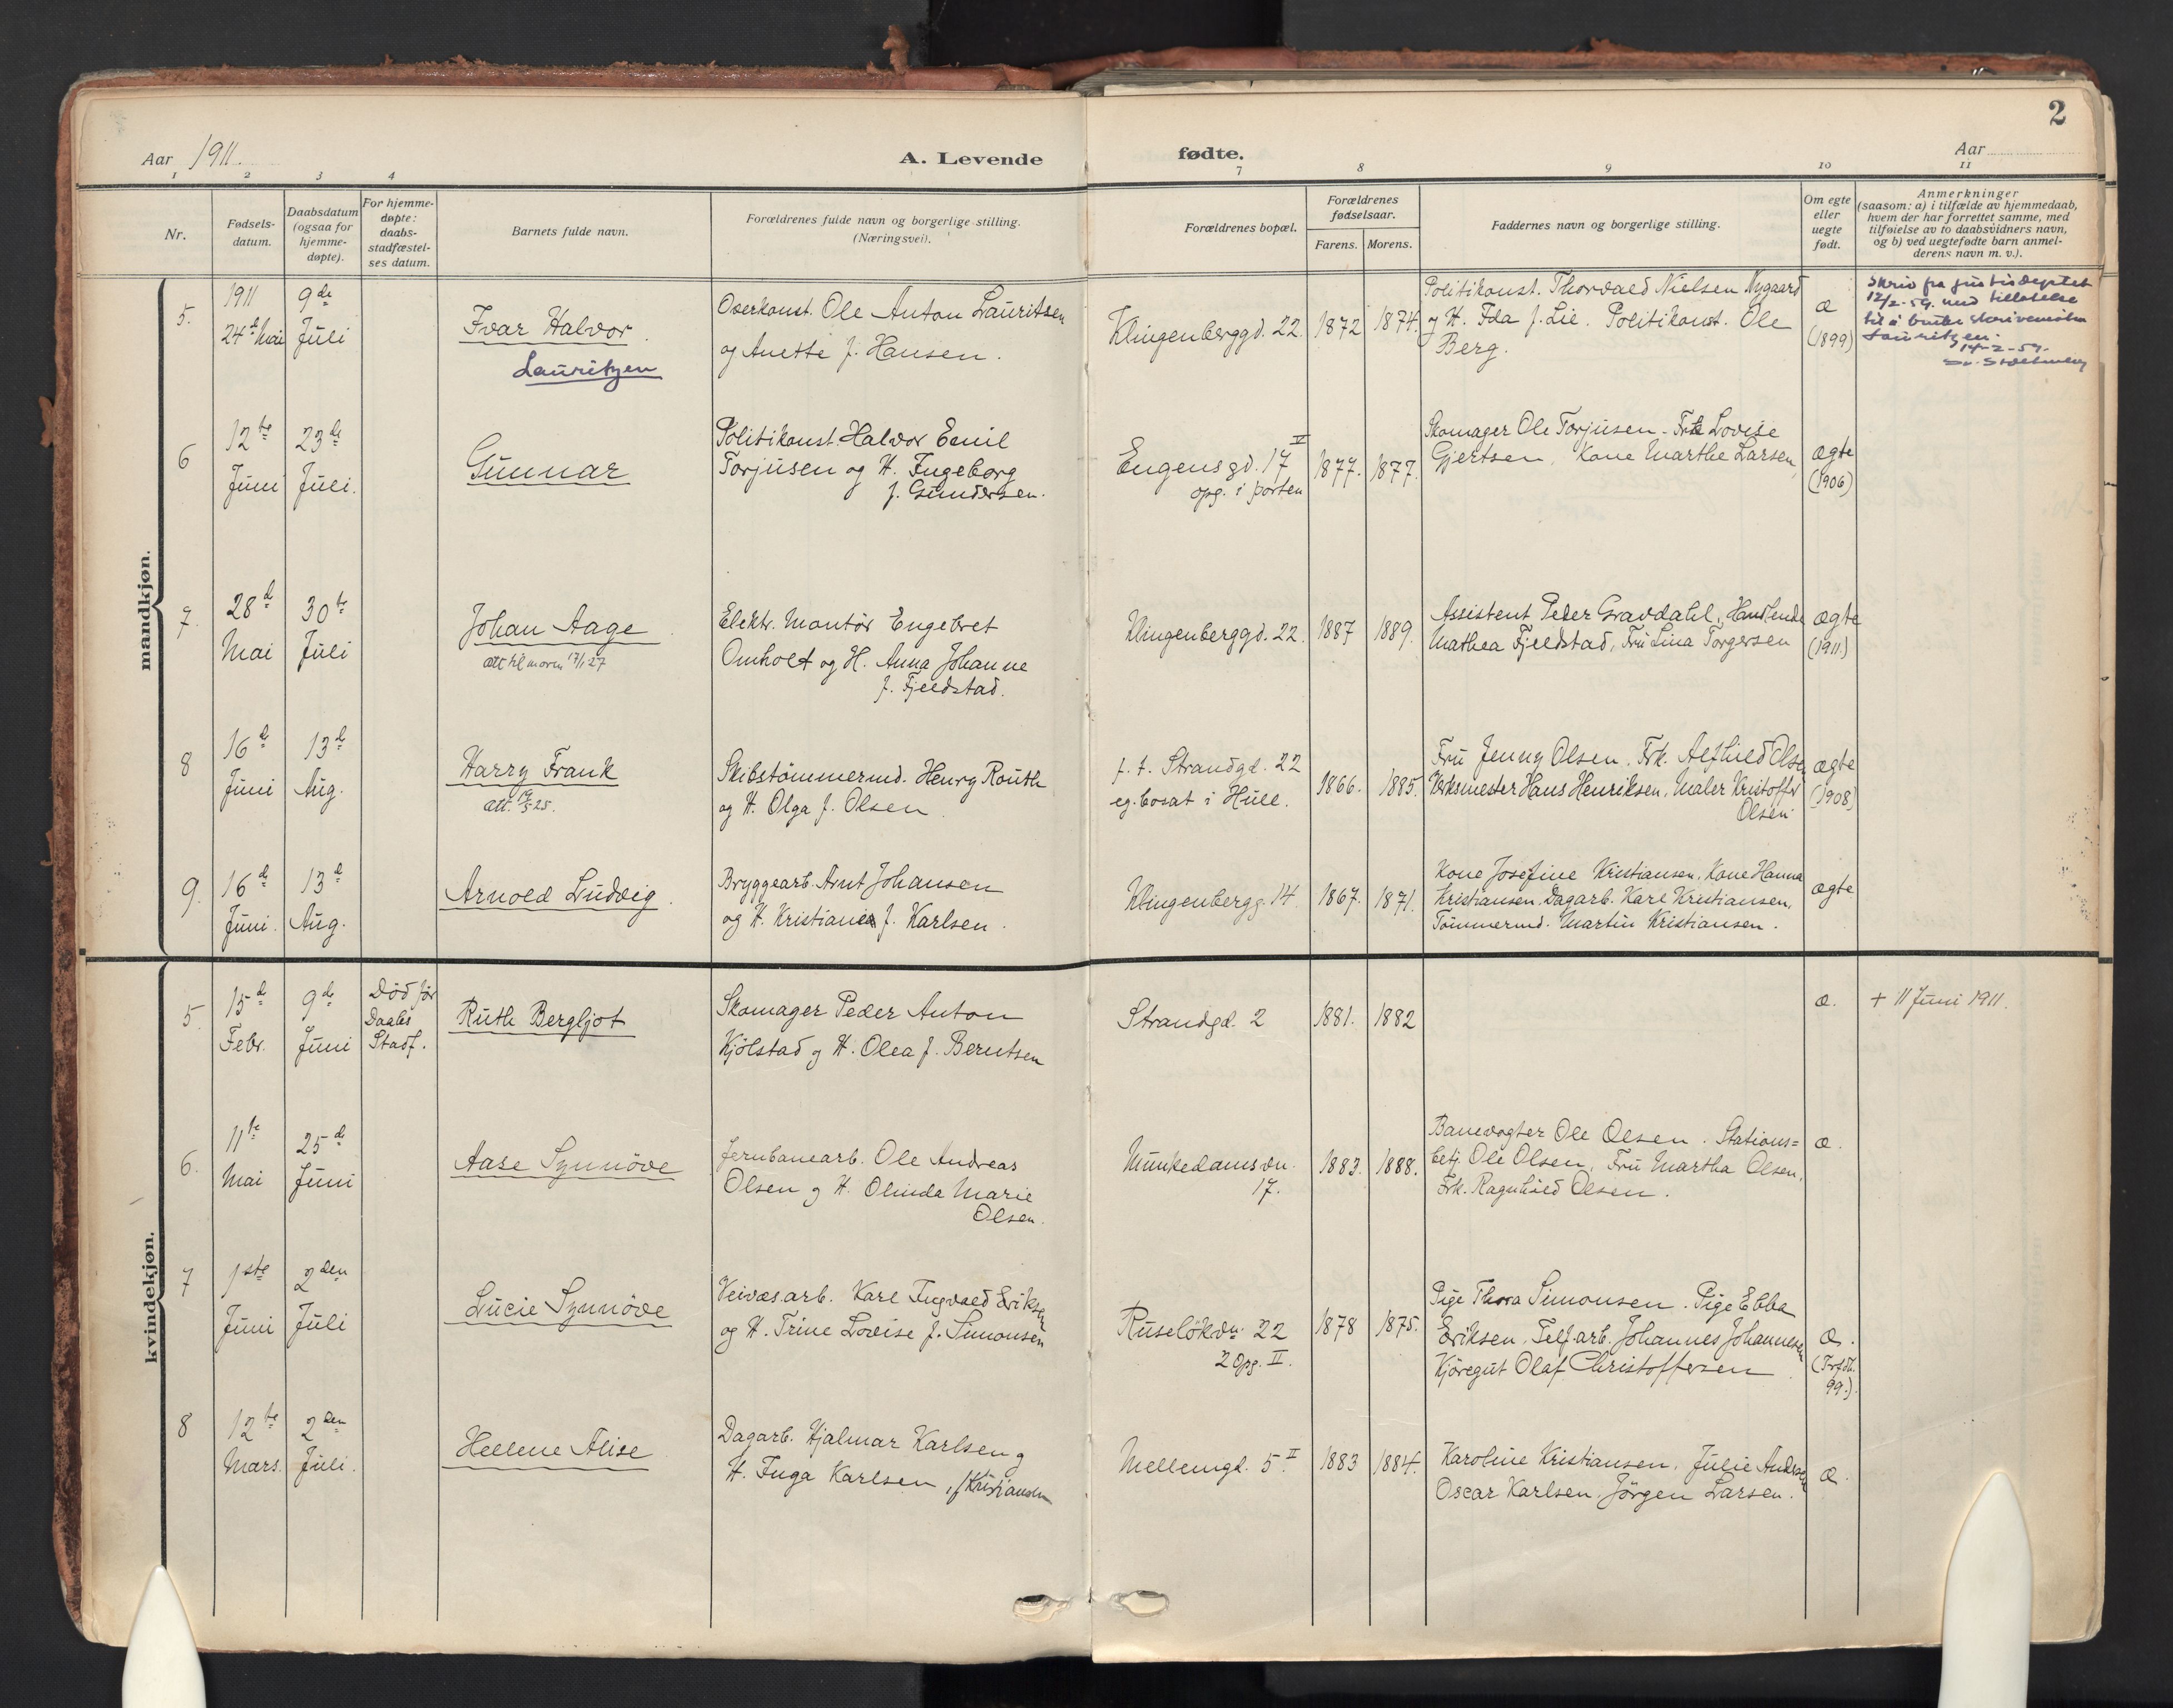 2
Aar 1911. A. Levende fødte. Aar
1 2 3 4 7 8 9 10 11
Nr.
Fødsels-
datum.
Daabsdatum
(ogsaa for
hjemme-
døpte).
For hjemme-
døpte:
daabs-
stadfæstel-
ses datum.
Barnets fulde navn.
Forældrenes fulde navn og borgerlige stilling.
(Næringsvei).
Forældrenes bopæl.
Forældrenes
fødselsaar.
Farens. Morens.
Faddernes navn og borgerlige stilling.
Om egte
eller
uegte
født.
Anmerkninger
(saasom: a) i tilfælde av hjemmedaab,
hvem der har forrettet samme, med
tilføielse av to daabsvidners navn,
og b) ved uegtefødte barn anmel-
derens navn m. v.).
mandkjøn.
5.
1911
24de Mai
9de
Juli
Ivar Halvor
Lauritzen
Overkonst. Ole Anton Lauritsen
og Anette f. Hansen.
Klingenberggd. 22.
1872
1874.
Politikonst. Thorvald Nielsen Nygaard
og H. Ida f. Lie. Politikonst. Ole
Berg.
æ
(1899)
Skriv fra justisdeptet
12/2-59. med tillatelse
til å bruke skrivemåten
Lauritzen.
14-2-59.
6
12te
Juni
23de
Juli.
Gunnar
Politikonst. Halvor Emil
Torjusen og H. Ingeborg
f. Gundersen.
Engensgd. 17 IV
opg. i porten
1877.
1877.
Skomager Ole Torjusen. Frk Lovise
Gjertsen, Kone Marthe Larsen,
ægte
(1906)
7.
28de
Mai
30te
Juli
Johan Aage
att til moren 17/1 27
Elektr. Montør Engebret
Omholt og H. Anna Johanne
f. Fjeldstad.
Klingenberggd. 22.
1887
1889.
Assistent Peder Gravdahl, Handlende
Mathea Fjeldstad, Fru Lina Torgersen
ægte
(1911)
8
16de
Juni
13de
Aug.
Harry Frank
att. 19/5 25.
Skibstømmermd. Henry Routh
og H. Olga f. Olsen
f. t. Strandgd. 22
eg. bosat i Hull.
1866.
1885.
Fru Jenny Olsen. Frk. Alfhild Olsen
Verksmester Hans Henriksen, Maler Kristoffer
Olsen
ægte
(1908)
9.
16de
Juni.
13de
Aug.
Arnold Ludvig.
Bryggearb. Arnt Johansen
og H. Kristiane f. Karlsen.
Klingenbergg. 14.
1867.
1871.
Kone Josefine Kristiansen, Kone Hanna
Kristiansen, Dagarb. Karl Kristiansen,
Tømmermd. Martin Kristiansen.
ægte
kvindekjøn.
5.
15de
Febr.
9de
Juni
Død før
Daabs
Stadf.
Ruth Bergljot
Skomager Peder Anton
Kjölstad og H. Olea f. Berntsen
Strandgd. 2
1881.
1882
æ.
+ 11 Juni 1911.
6.
11te
Mai
25de
Juni
Aase Synnöve
Jernbanearb. Ole Andreas
Olsen og H. Olinda Marie
Olsen.
Munkedamsvn.
17.
1883.
1888.
Banevogter Ole Olsen. Stations=
betj. Ole Olsen, Fru Martha Olsen,
Frk. Ragnhild Olsen.
æ.
7
1ste
Juni
2den
Juli
Lucie Synnöve
Veivæs.arb. Karl Ingvald Eriksen
og H. Trine Lovise f. Simonsen
Ruselökvn. 22
2 Opg. II.
1878
1875.
Pige Thora Simonsen. Pige Ebba
Eriksen, Telf.arb. Johannes Johannesen
Kjöregut Olaf Christoffersen
æ.
(Trfdh.
99.)
8
12te
Mars.
2den
Juli.
Hellene Alise
Dagarb. Hjalmar Karlsen og
H. Inga Karlsen, f Kristiansen
Mellemgd. 5. II
1883
1884.
Karoline Kristiansen, Julie Andersen
Oscar Karlsen, Jörgen Larsen.
æ.